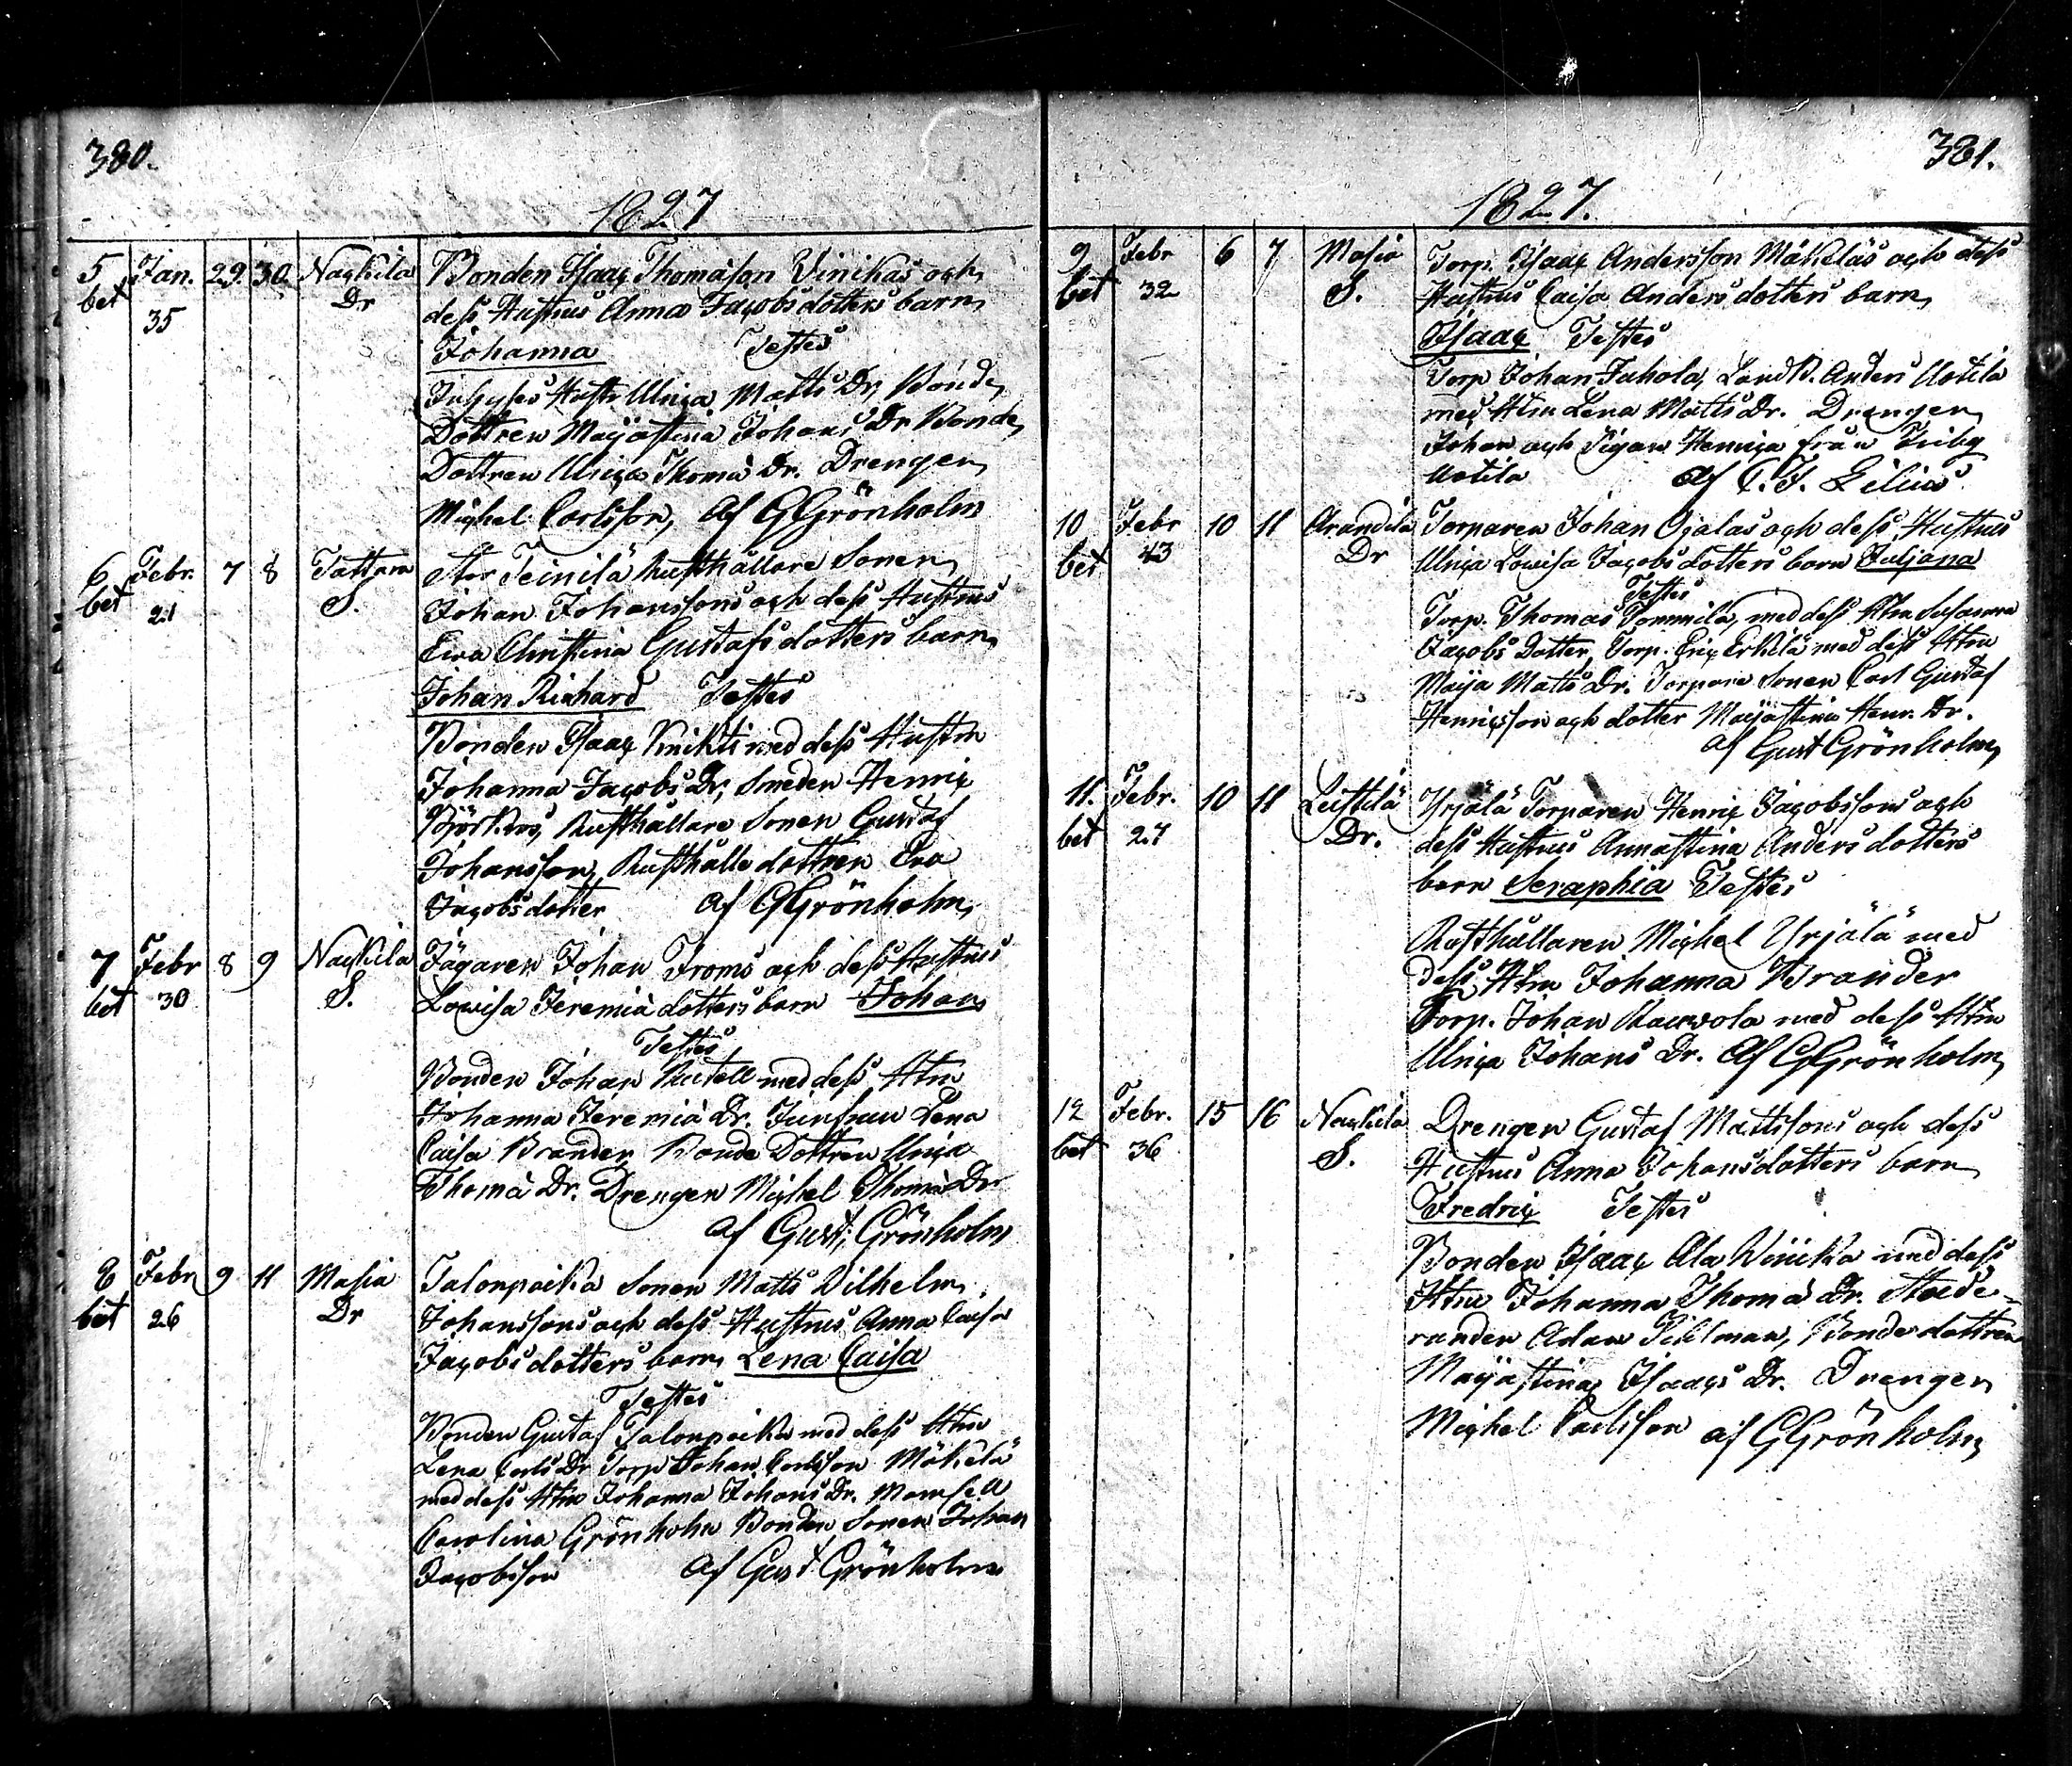 380.
1827
5 Jan. 29. 30. Nackila Bonden Isaac Thomasson Vinikas och
bet 35 Dr dess Hustrus Anna Jacobsdotters barn
Johanna Testes
Hustr Ulrica Matts Dr, Bonde
Dottren Majastina Johans Dr Bonde
Dottren Ulrica Thomæ Dr. Drengen
Michel Carlsson, Af GGrönholm
6 Febr. 7 8 Tattara Stor Teinilä Rusthållare Sonen
bet 21 S. Johan Johanssons och dess Hustrus
Eva Christina Gustafsdotters barn
Johan Richard Testes
Bonden Isaac Knikti med dess Hustru
Johanna Jacobs Dr, Smeden Henric
Björkros, Rusthållare Sonen Gustaf
Johansson, Rusthålle dottren Eva
Jacobsdotter af GGrönholm
7 Febr 8 9 Nackila Jägaren Johan Froms och dess Hustrus
bet 30 S. Lowisa Jeremiædotters barn Johan
Testes
Bonden Johan Rutell med dess Hru
Johanna Jeremiæ Dr. Jungfrun Lena
Caisa Brander, Bonde Dottren Ulrica
Thomæ Dr. Drengen Michel Thomæ Dr
af Gust. Grönholm
8 Febr 9 11 Masia Talonpoika Sonen Matts Vilhelm
bet 26 Dr Johanssons och dess Hustrus Anna Caisa
Jacobsdotters barn Lena Caisa
Testes
Bonden Gustaf Talonpoika med dess Hru
Lena Carls Dr Torp Johan Carlsson Mäkelä
med dess Hru Johanna Johans Dr. Mamsell
Carolina Grönholm Bonden Sonen Johan
Jacobsson af Gust Grönholm
381.
1827.
9 Febr 6 7 Masia Torp. Isaac Andersson Mäkeläs och dess
bet 32 S. Hustrus Caisa Andersdotters barn
Isaac Testes
Torp Johan Juhola, LandB. Anders Uotila
med Hru Lena Matts Dr. Drengen
Johan och Pigan Henrica från Friby
Uotila af C. J. Lilius
10 Febr 10 11 Arandila Torparen Johan Ojalas och dess Hustrus
bet 43 Dr Ulrica Lowisa Jacobsdotters barn Juljana
Testes
Torp. Thomas Tommila, med dess Hru Susanna
Jacobs Dotter, Torp. Eric Erkilä med dess Hru
Maja Matts Dr. Torpare Sonen Carl Gustaf
Henricsson och dotter Majastina Henr. Dr.
af Gust Grönholm
11. Febr. 10 11 Leistilä Yrjälä Torparen Henric Jacobssons och
bet 27 Dr. dess Hustrus Annastina Andersdotters
barn Seraphia Testes
Rusthållaren Michel Yrjälä med
dess Hru Johanna Brander
Torp. Johan Rauvola med dess Hru
Ulrica Johans Dr. Af GGrönholm
12 Febr. 15 16 Nackila Drengen Gustaf Mattssons och dess
bet 36 S. Hustrus Anna Johansdotters barn
Fredric Testes
Bonden Isaac Ala Vinika med dess
Hru Johanna Thomæ Dr. Stude-
randen Adam Pihlman, Bondedottren
Majastina Isaacs Dr. Drengen
Michel Carlsson af GGrönholm